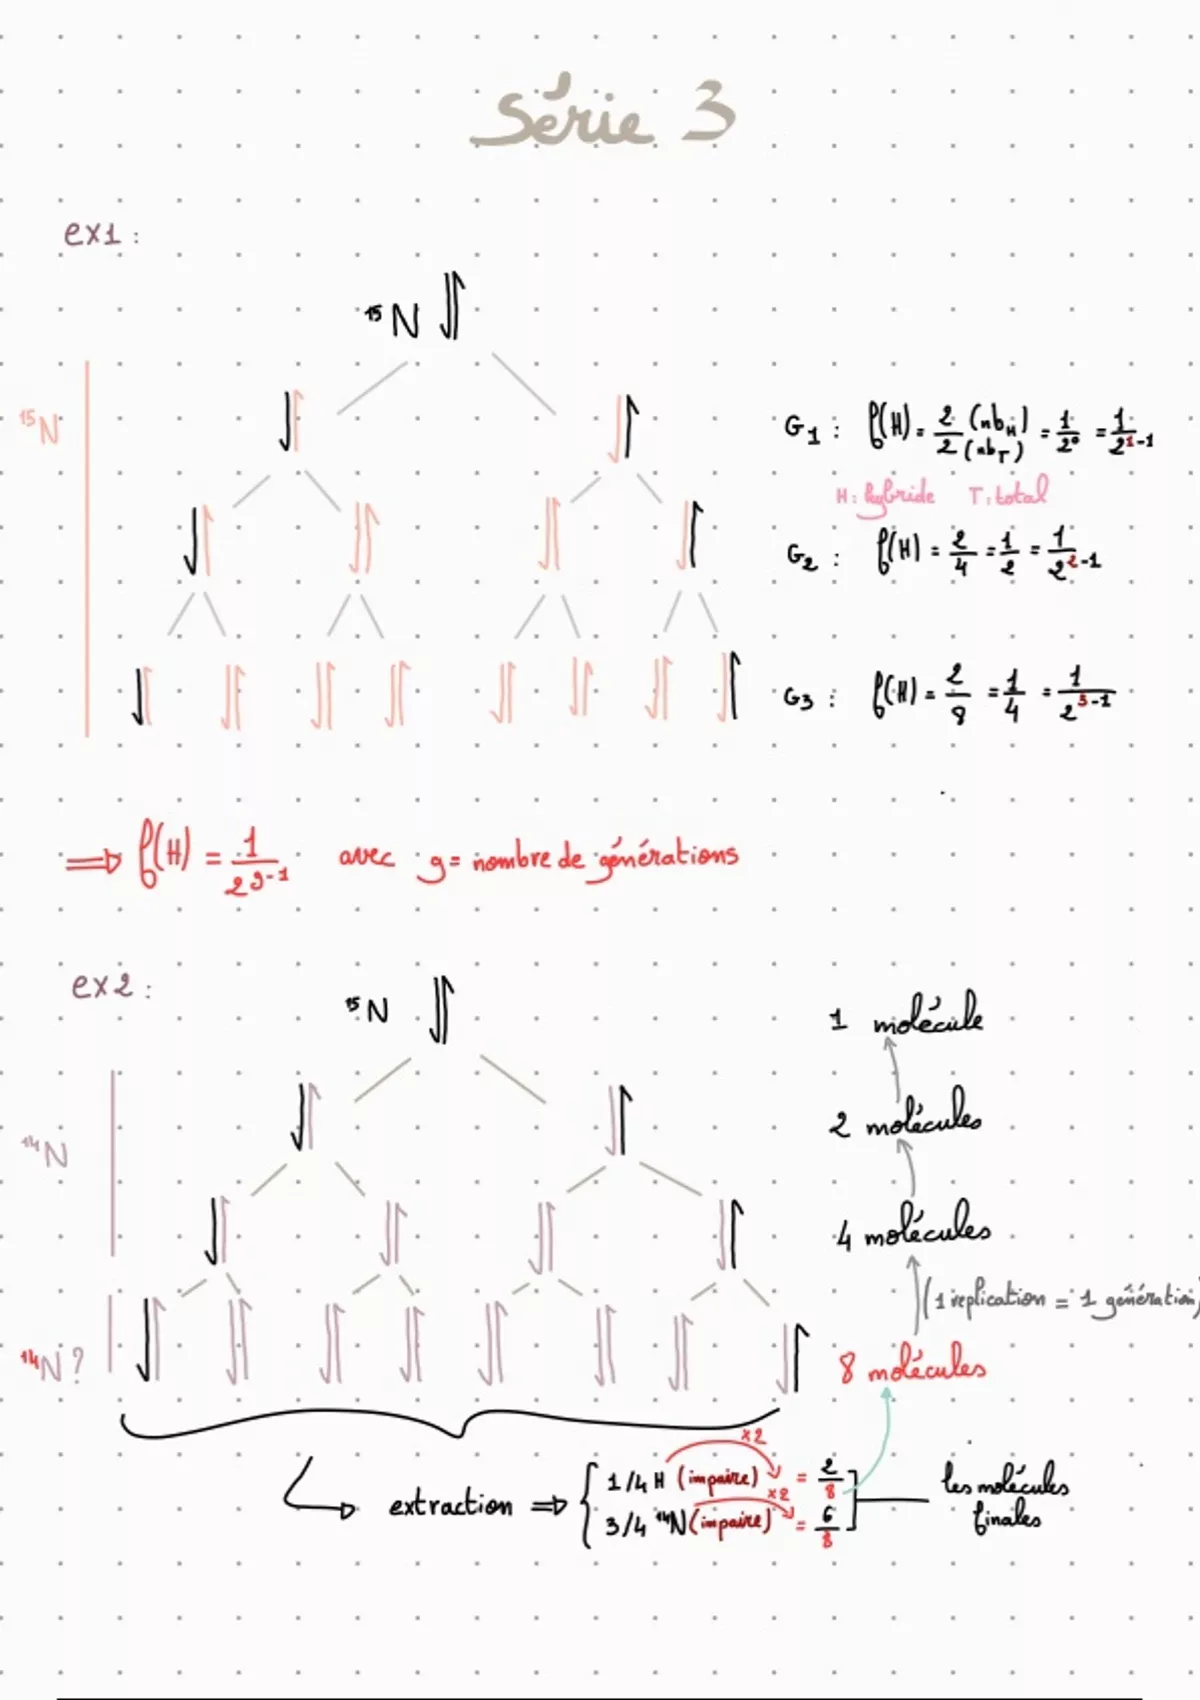 Série 3
ex1 :
¹⁵N
¹⁵N
G₁ : f(H) = 2 (nb_H) / 2 (nb_T) = 1/2⁰ = 1/2¹⁻¹
H : hybride T : total
G₂ : f(H) = 2/4 = 1/2 = 1/2²⁻¹
G₃ : f(H) = 2/8 = 1/4 = 1/2³⁻¹
⇒ f(H) = 1/2ᵍ⁻¹ avec g = nombre de générations
ex2 :
¹⁵N
1 molécule
¹⁴N
2 molécules
4 molécules
(1 replication = 1 génération)
¹⁴N ?
8 molécules
×2
extraction ⇒ { 1/4 H (impaire) = 2/8
×2
3/4 ¹⁴N (impaire) = 6/8
les molécules
finales